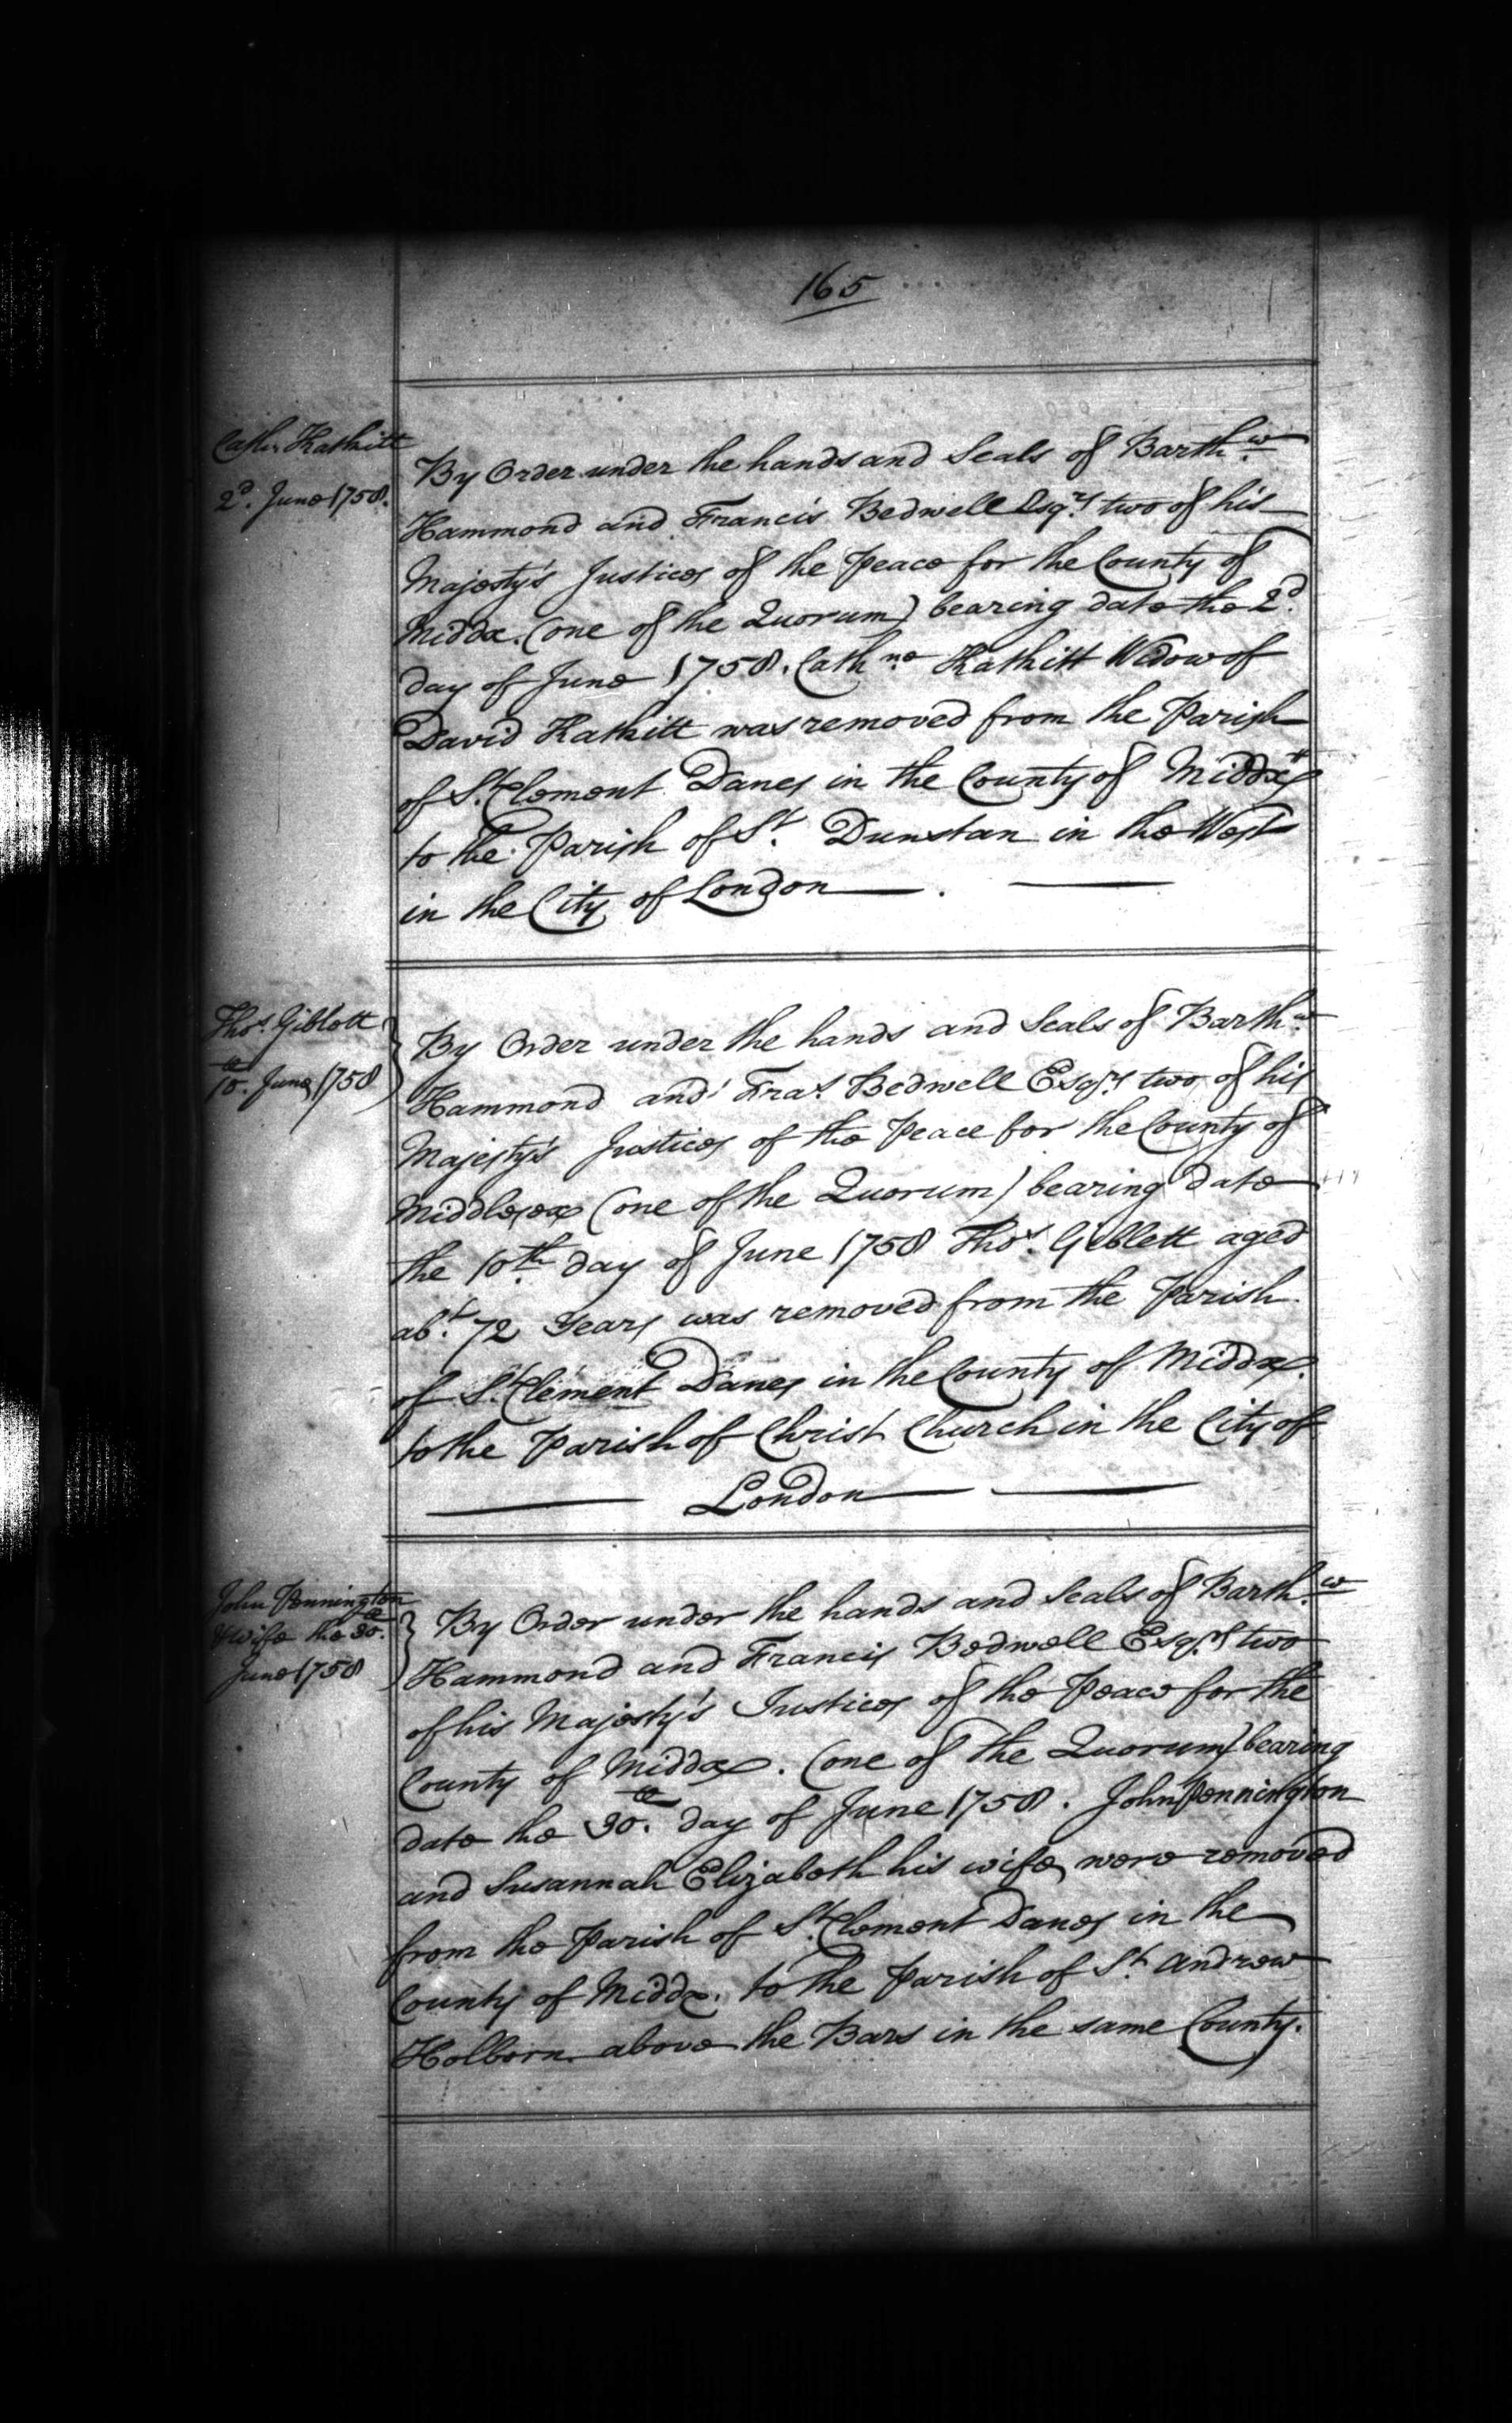 165
Cathn. Kathitt
2d. June 1758.
By Order under the hands and Seals of Barthw.
Hammond and Francis Bedwell Esqrs. two of his
Majesty's Justices of the Peace for the County of
Middx. (one of the Quorum) bearing date the 2d.
day of June 1758. Cathne. Kathitt Widow of
David Kathitt was removed from the Parish
of St. Clement Danes in the County of Middx
to the Parish of St. Dunstan in the West
in the City of London
Thos. Giblett
10th. June 1758
By Order under the hands and Seals of Barthw.
Hammond and Fras. Bedwell Esqrs. two of his
Majesty's Justices of the Peace for the County of
Middlesex (one of the Quorum) bearing date
the 10th. day of June 1758 Thos. Giblett aged
abt. 72 Years was removed from the Parish
of St. Clement Danes in the County of Middx.
to the Parish of Christ Church in the City of
London
John Pennington
& wife the 30th.
June 1758
By Order under the hands and Seals of Barthw.
Hammond and Francis Bedwell Esqrs. two
of his Majesty's Justices of the Peace for the
County of Middx. (one of the Quorum) bearing
date the 30th. day of June 1758. John Pennington
and Susannah Elizabeth his wife were removed
from the Parish of St. Clement Danes in the
County of Middx. to the Parish of St. Andrew
Holborn above the Bars in the same County.